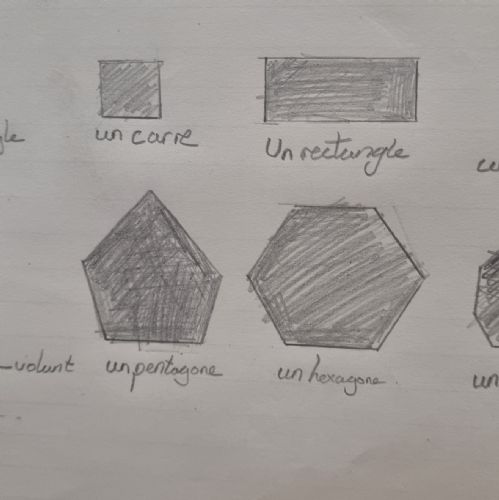 gle un carre Un rectangle
-volant un pentagone un hexagone un